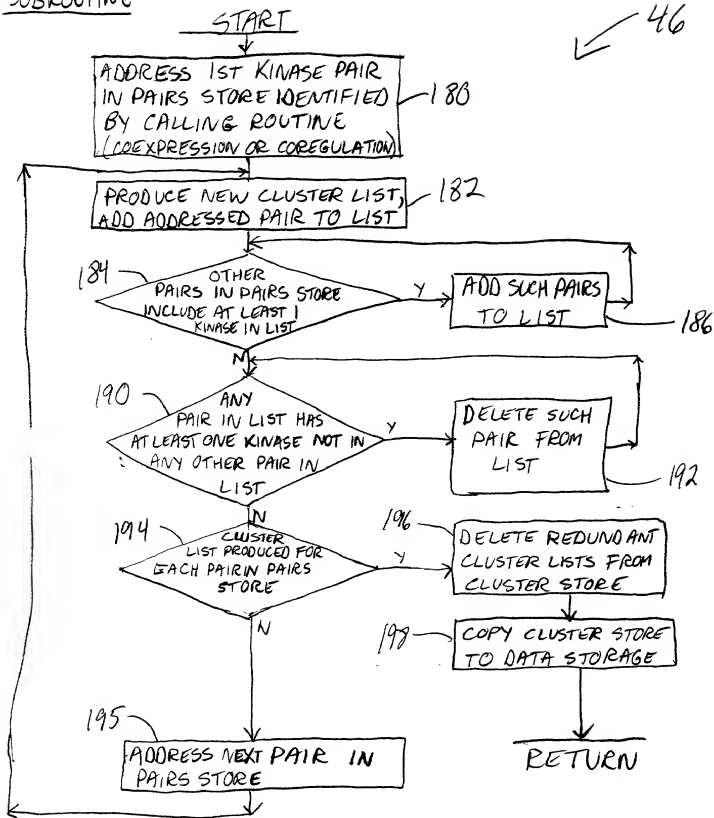 SUBROUTINE
START
46
ADDRESS 1ST KINASE PAIR
IN PAIRS STORE IDENTIFIED
BY CALLING ROUTINE
(COEXPRESSION OR COREGULATION)
180
PRODUCE NEW CLUSTER LIST,
ADD ADDRESSED PAIR TO LIST
182
184
OTHER
PAIRS IN PAIRS STORE
INCLUDE AT LEAST 1
KINASE IN LIST
Y
ADD SUCH PAIRS
TO LIST
186
N
190
ANY
PAIR IN LIST HAS
AT LEAST ONE KINASE NOT IN
ANY OTHER PAIR IN
LIST
Y
DELETE SUCH
PAIR FROM
LIST
192
N
194
CLUSTER
LIST PRODUCED FOR
EACH PAIR IN PAIRS
STORE
Y
196
DELETE REDUNDANT
CLUSTER LISTS FROM
CLUSTER STORE
N
198
COPY CLUSTER STORE
TO DATA STORAGE
195
ADDRESS NEXT PAIR IN
PAIRS STORE
RETURN